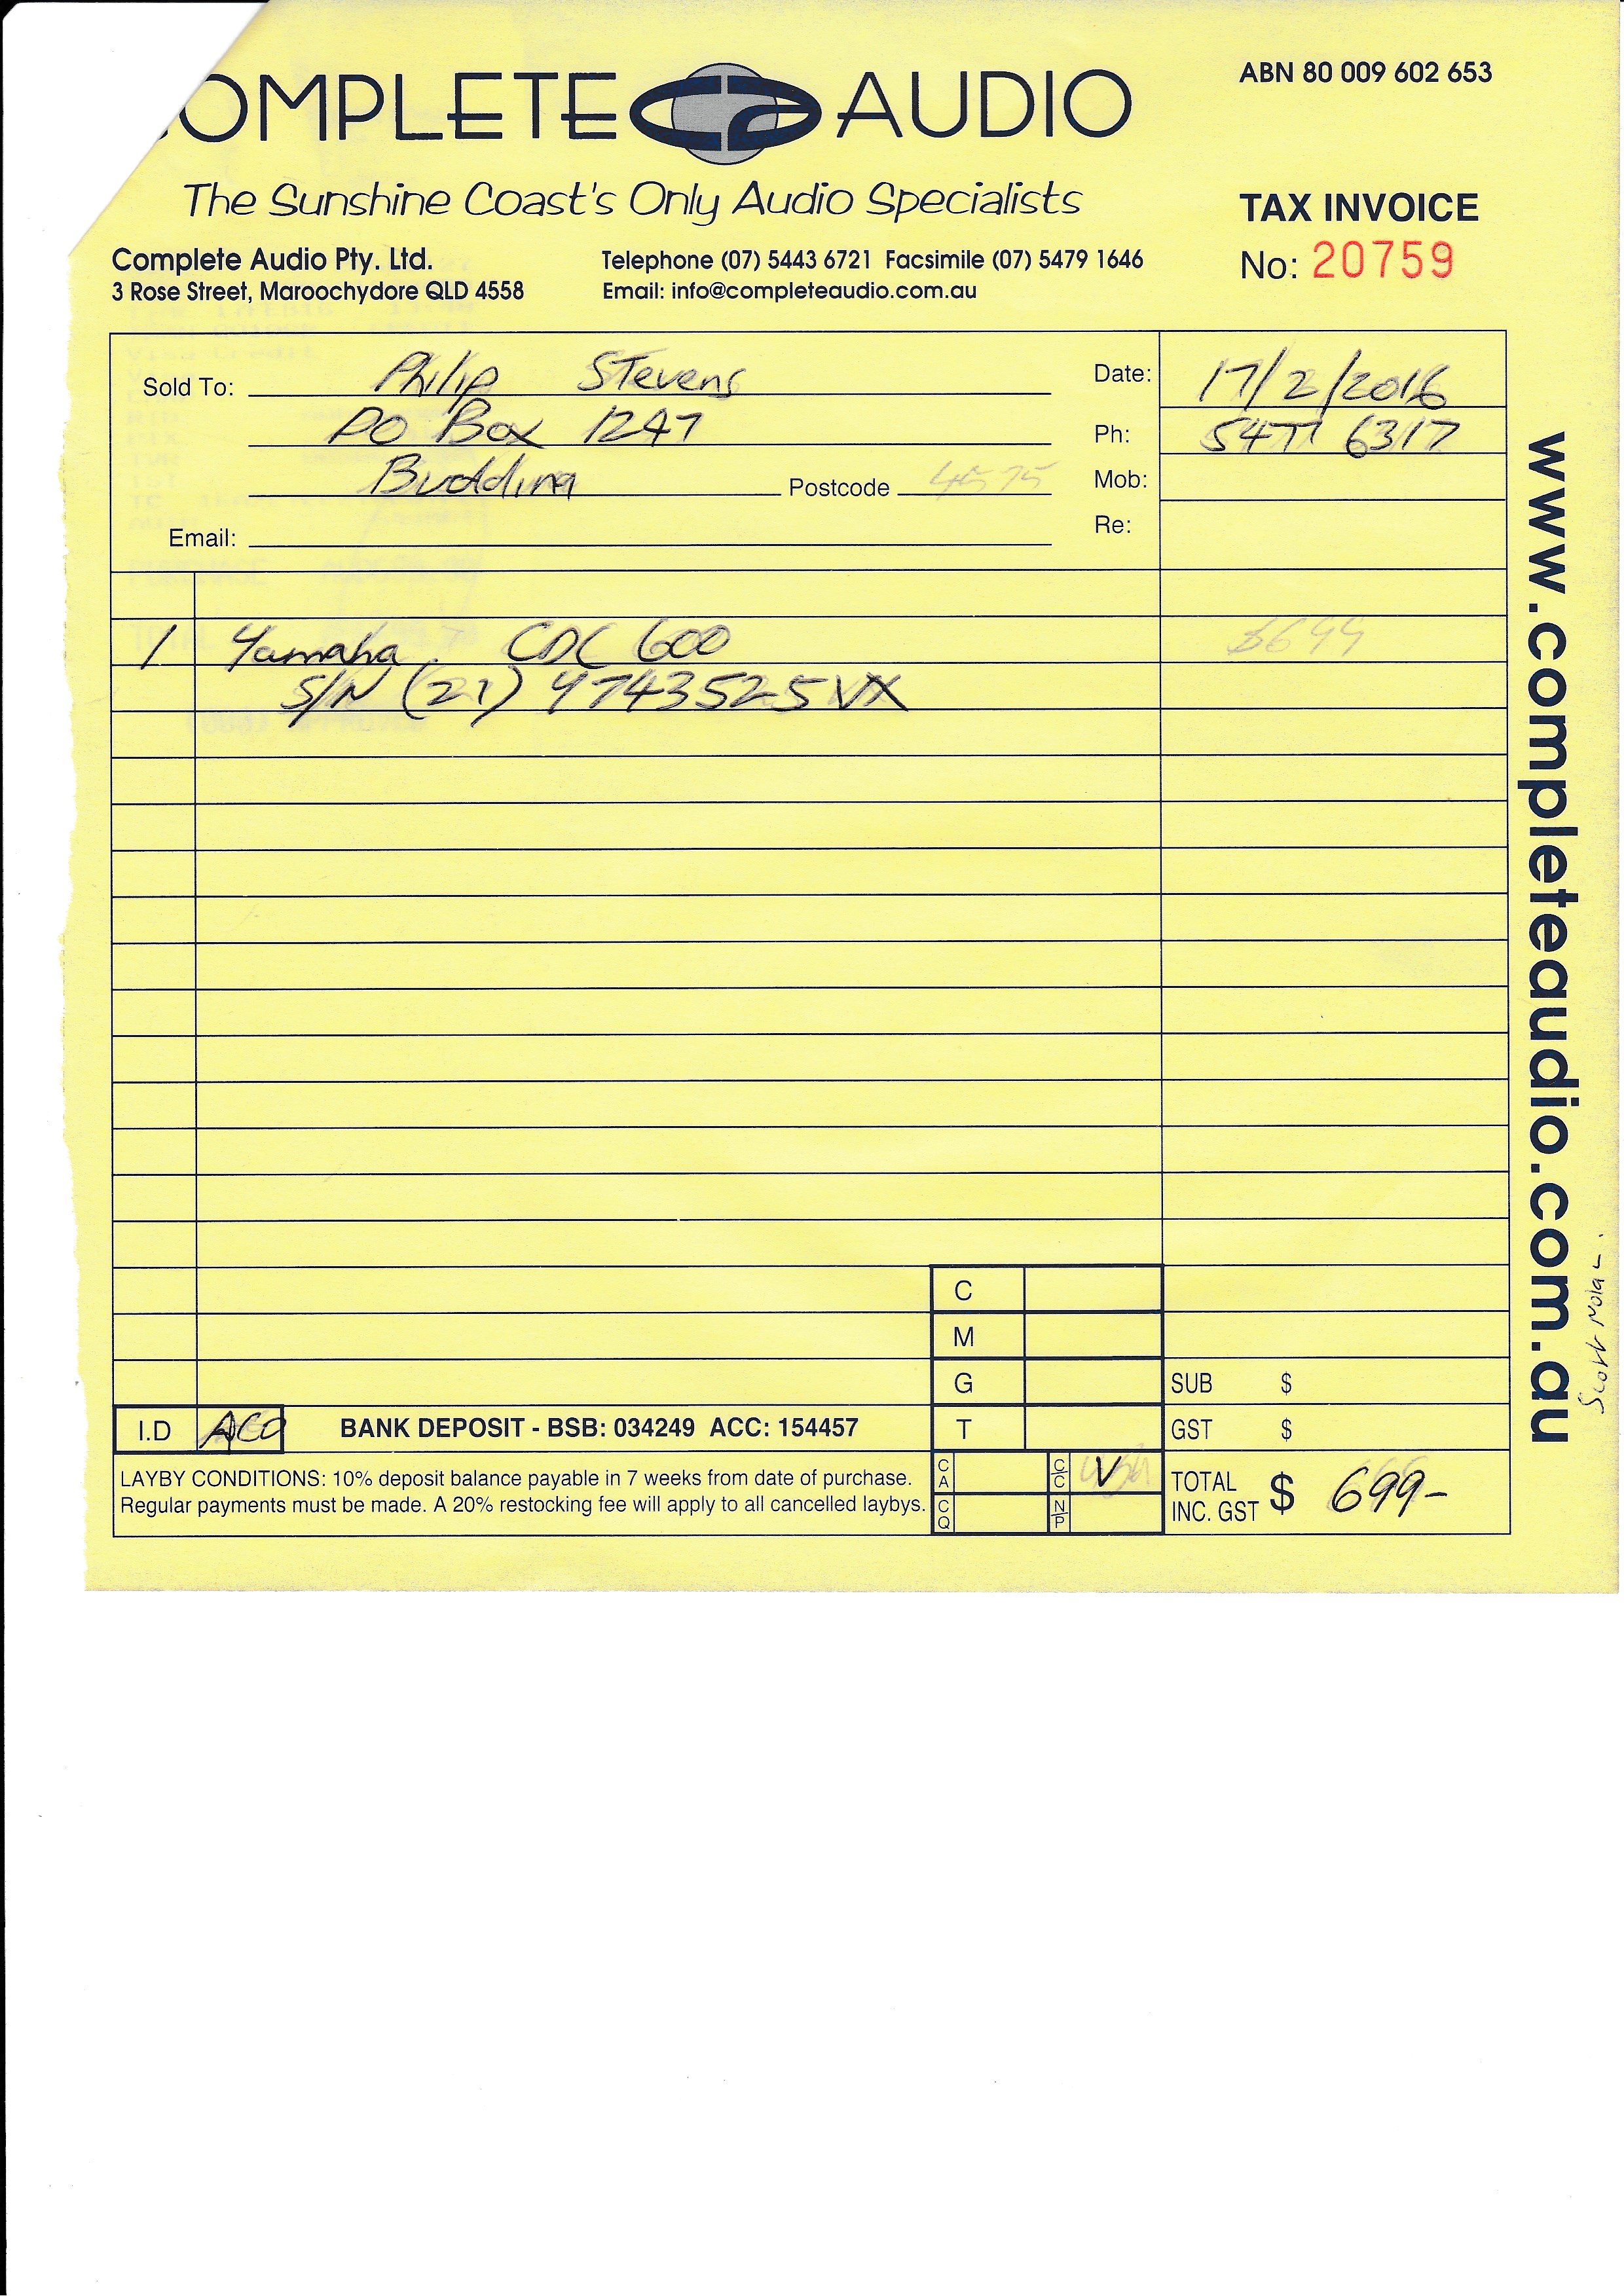 OMPLETE AUDIO
ABN 80 009 602 653
The Sunshine Coast's Only Audio Specialists
TAX INVOICE
No: 20759
Complete Audio Pty. Ltd.
3 Rose Street, Maroochydore QLD 4558
Telephone (07) 5443 6721 Facsimile (07) 5479 1646
Email: info@completeaudio.com.au
Sold To: Philip Stevens
Date: 17/2/2016
PO Box 1247
Ph: 5477 6317
Buddina Postcode 4575
Mob:
Email:
Re:
1 Yamaha CDC 600 $699
S/N (21) 4743525VX
www.completeaudio.com.au
C
M
G
SUB $
I.D ACO BANK DEPOSIT - BSB: 034249 ACC: 154457
T
GST $
LAYBY CONDITIONS: 10% deposit balance payable in 7 weeks from date of purchase.
Regular payments must be made. A 20% restocking fee will apply to all cancelled laybys.
CA
C/C V
CQ
N/P
TOTAL INC. GST $ 699-